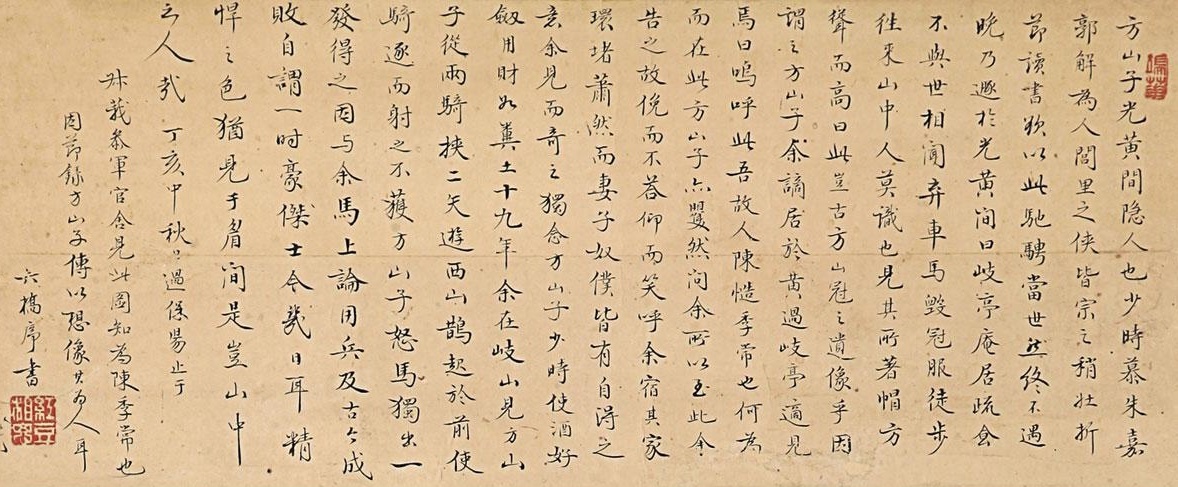 方山子光黄間隐人也少時慕朱嘉
郭解為人閭里之俠皆宗之稍壮折
節讀書欲以此馳騁當世然終不遇
晚乃遯於光黄间曰岐亭庵居疏食
不與世相闻弃車馬毀冠服徒步
往来山中人莫識也見其所著帽方
聳而高曰此豈古方山冠之遺像乎因
謂之方山子余謫居於黄過岐亭適見
焉曰嗚呼此吾故人陳慥季常也何為
而在此方山子亦矍然问余所以至此余
告之故俛而不荅仰而笑呼余宿其家
環堵蕭然而妻子奴僕皆有自得之
意余見而奇之獨念方山子少時使酒好
劔用財如糞土十九年余在岐山見方山
子從兩騎挾二矢遊西山鵲起於前使
騎逐而射之不獲方山子怒馬獨出一
發得之因与余馬上論用兵及古今成
敗自謂一时豪傑士今幾日耳精
悍之色猶見于眉间是豈山中
之人哉 丁亥中秋 過保陽止于
叔莪參軍官舍見此圖知為陳季常也
因節錄方山子傳以想像其为人耳
六橋序書